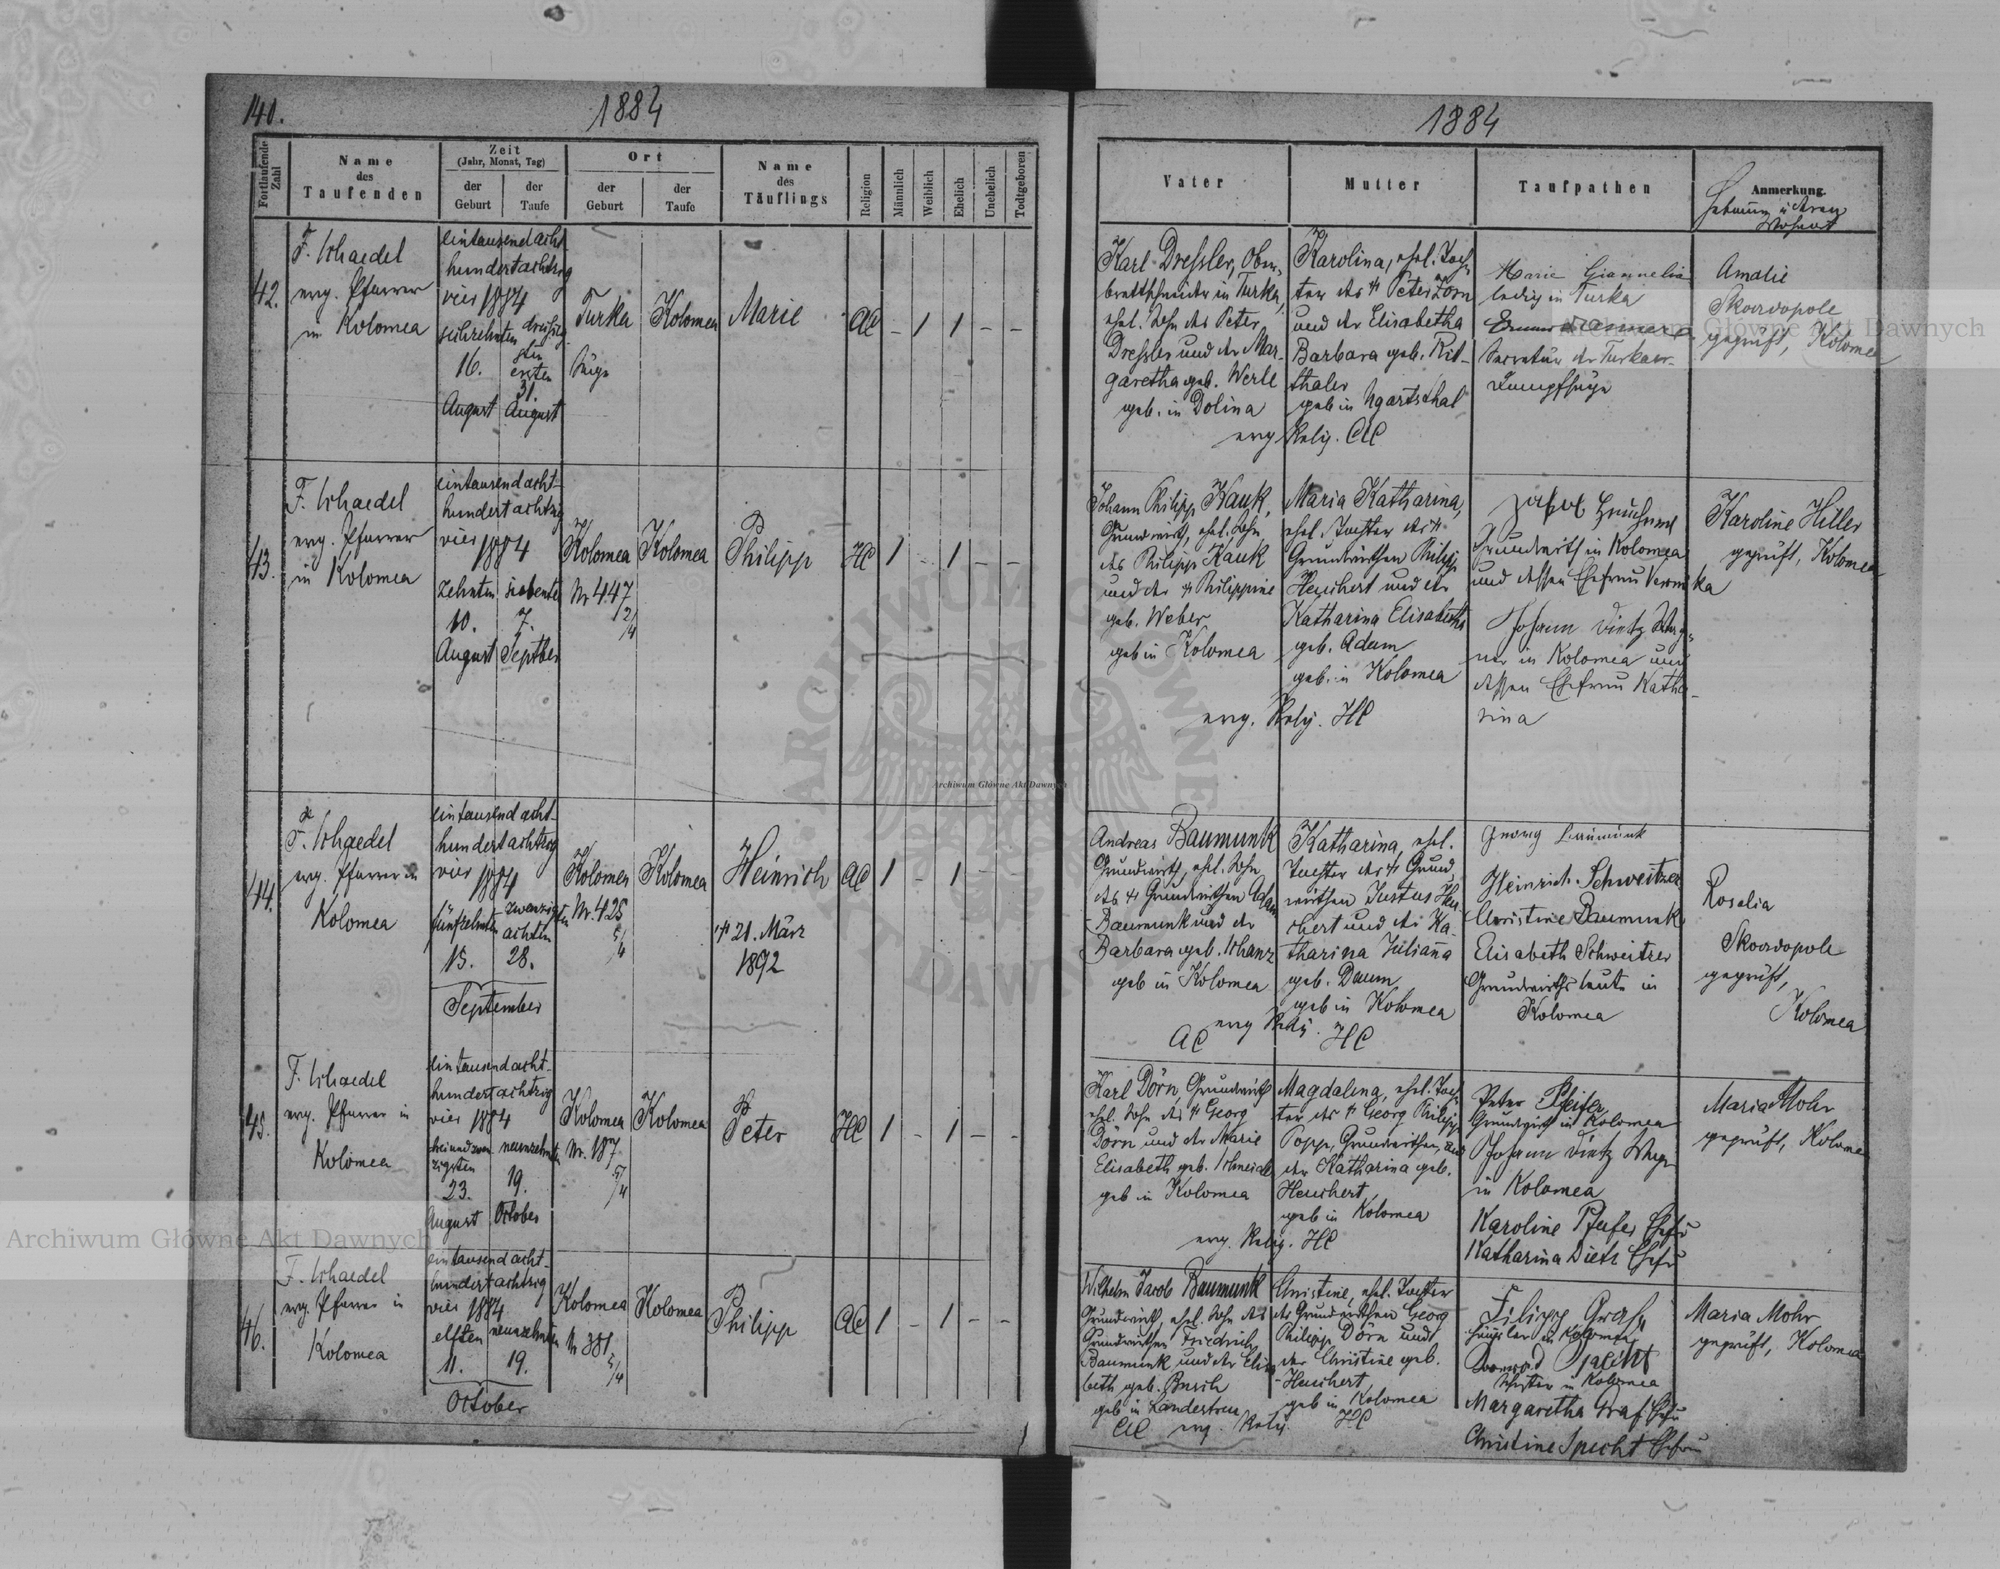 140.
1884
Fortlaufende Zahl
Name
des
Taufenden
Zeit
(Jahr, Monat, Tag)
der
Geburt
der
Taufe
Ort
der
Geburt
der
Taufe
Name
des
Täuflings
Religion
Männlich
Weiblich
Ehelich
Unehelich
Todtgeboren
42.
F. Schaedel
evg. Pfarrer
in Kolomea
eintausendacht
hundertachtzig
vier 1884
sechzehnten
16.
August
dreißig
sten
ersten
31.
August
Turka
Säge
Kolomea
Marie
AC
- 1 1 - -
43.
F. Schaedel
evg. Pfarrer
in Kolomea
eintausendacht-
hundertachtzig
vier 1884
zehnten
10.
August
siebente
7.
Septber
Kolomea
Nr 447
2/4
Kolomea
Philipp
HC
1 - 1 - -
44.
F. Schaedel
evg. Pfarrer in
Kolomea
eintausendacht-
hundertachtzig
vier 1884
fünfzehnten
15.
zwanzigsten
achten
28.
September
Kolomea
Nr. 425
5/4
Kolomea
Heinrich
21. März
1892
AC
1 - 1 - -
45.
F. Schaedel
evg. Pfarrer in
Kolomea
eintausendacht-
hundertachtzig
vier 1884
dreiundzwan
zigsten
23.
August
neunzehnten
19.
October
Kolomea
Nr. 187
5/4
Kolomea
Peter
HC
1 - 1 - -
46.
F. Schaedel
evg. Pfarrer in
Kolomea
eintausendacht-
hundertachtzig
vier 1884
elften
11.
neunzehnten
19.
October
Kolomea
N 381
5/4
Kolomea
Philipp
AC
1 - 1 - -
1884
Vater
Mutter
Taufpathen
Anmerkung.
Hebamme u deren
Wohnort
Karl Dressler, Ober-
brettschneider in Turka,
ehel. Sohn des Peter
Dressler und der Mar-
garetha geb. Werle
geb. in Dolina
Karolina, ehel. Toch-
ter des Peter Zorn
und der Elisabetha
Barbara geb. Rit-
thaler
geb in Ugartsthal
evg Relig. AC
Marie Giannelia
ledig in Turka
Secretär der Turkaer
Dampfsäge
Amalie
Skowdopole
geprüft, Kolomea
Johann Philipp Kauk,
Grundwirth, ehel. Sohn
des Philipp Kauk
und der Philippine
geb. Weber
geb in Kolomea
Maria Katharina,
ehel. Tochter des
Grundwirthen Philipp
Heuchert und der
Katharina Elisabetha
geb. Adam
geb. in Kolomea
evg. Relig. HC
Jakob Heuchert
Grundwirth in Kolomea
und dessen Ehefrau Veronika
Johann Dietz Wag-
ner in Kolomea und
dessen Ehefrau Katha-
rina
Karoline Hiller
geprüft, Kolomea
Andreas Baumunk
Grundwirth, ehel. Sohn
des Grundwirthen Adam
Baumunk und der
Barbara geb. Schanz
geb in Kolomea
Katharina, ehel.
Tochter des Grund-
wirthen Justus Heu-
chert und der Ka-
tharina Juliana
geb. Daum
geb in Kolomea
evg Relig.
AC HC
Georg Baumunk
Heinrich Schweitzer
Christine Baumunk
Elisabeth Schweitzer
Grundwirthsleute in
Kolomea
Rosalia
Skowdopole
geprüft,
Kolomea
Karl Dörn, Grundwirth
ehel. Sohn des Georg
Dörn und der Marie
Elisabeth geb. Schneider
geb in Kolomea
Magdalena, ehel. Toch-
ter des Georg Philipp
Popp, Grundwirthen, und
der Katharina geb.
Heuchert,
geb in Kolomea
evg. Relig. HC
Peter Pfeifer
Grundwirth in Kolomea
Johann Dietz Wagn
in Kolomea
Karoline Pfeifer Ehefr
Katharina Dietz Ehefr
Maria Mohr
geprüft, Kolomea
Wilhelm Jacob Baumunk
Grundwirth, ehel. Sohn des
Grundwirthen Friedrich
Baumunk und der Elisa
beth geb. Busch
geb in Landestreu
Christine, ehel. Tochter
des Grundwirthen Georg
Philipp Dörn und
der Christine geb.
Heuchert,
geb in Kolomea
AC evg. Relig. HC
Filipp Graf
Häusler in Kolomea
Konrad Specht
in Kolomea
Margaretha Graf Ehefr
Christine Specht Ehefrau
Maria Mohr
geprüft, Kolomea
Archiwum Główne Akt Dawnych
Archiwum Główne Akt Dawnych
Archiwum Główne Akt Dawnych
ARCHIWUM GŁÓWNE AKT DAWNYCH